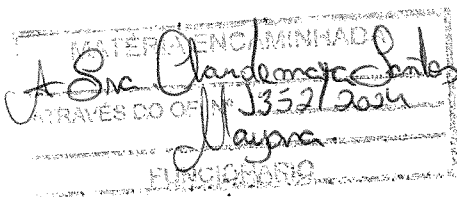 MATÉRIA ENCAMINHADA
A Sra Claudemaya Santos
ATRAVÉS DO OF. Nº 1352/2024
Mayara
FUNCIONÁRIO